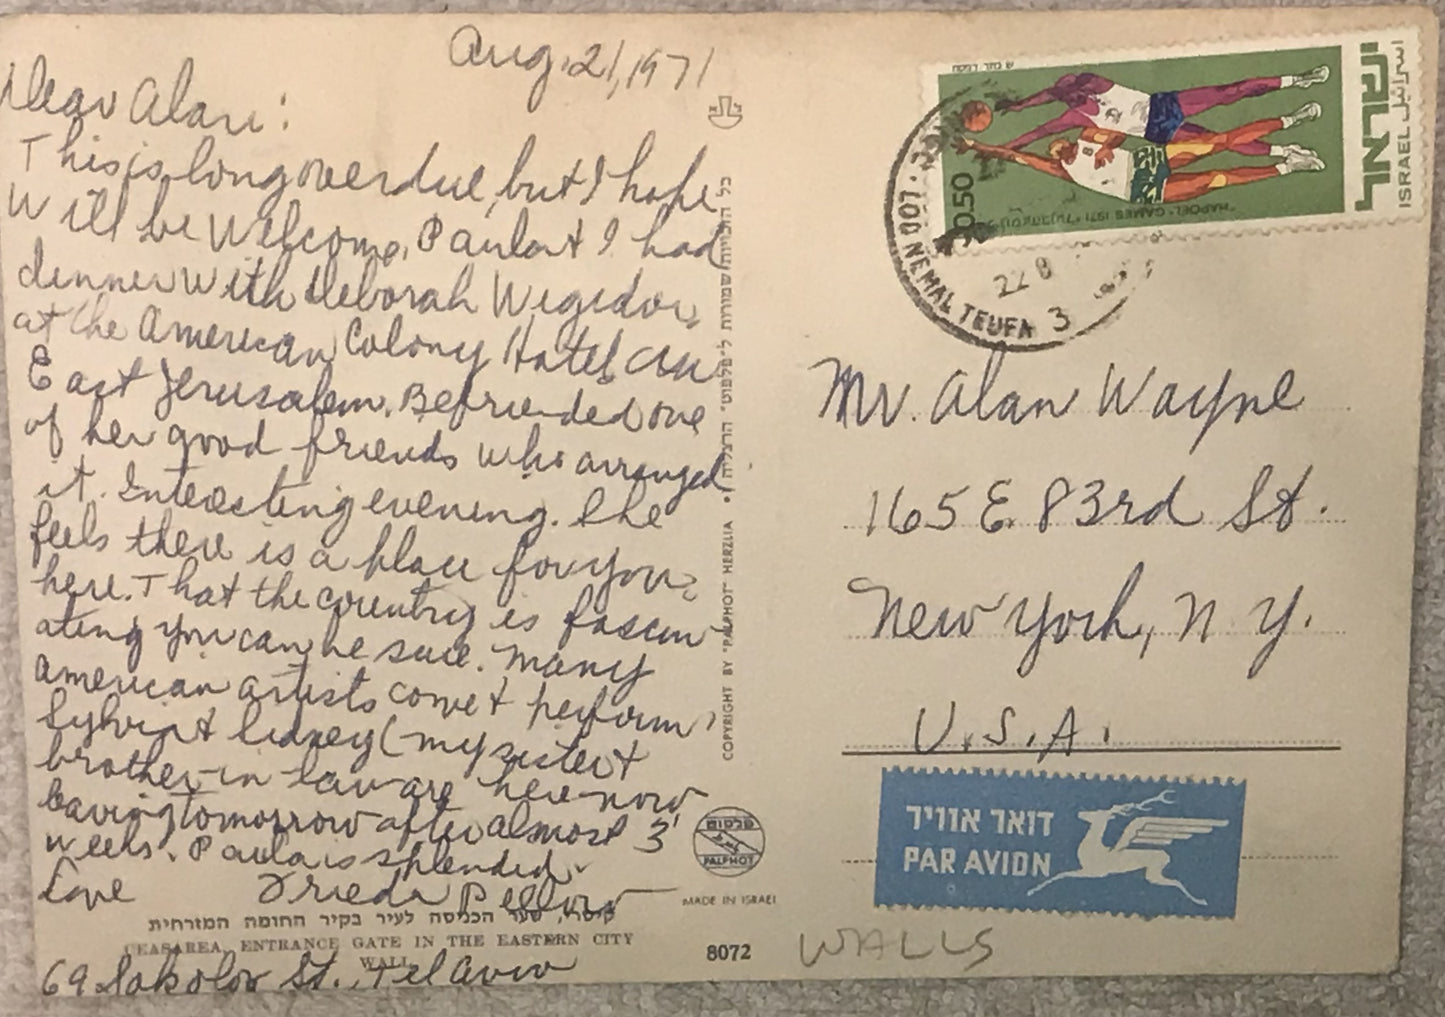 Aug. 21, 1971
Dear Alan:
This is long overdue, but I hope
will be welcome. Paula & I had
dinner with Deborah Wigodor,
at the American Colony Hotel in
East Jerusalem. Befriended one
of her good friends who arranged
it. Interesting evening. She
feels there is a place for you
here. That the country is fascin-
ating you can be sure. Many
American artists come & perform.
Sylvia & Sidney (my sister &
brother-in-law are here now
leaving tomorrow after almost 3
weeks. Paula is splendid.
Love Frieda
קיסרי, שער הכניסה לעיר בקיר החומה המזרחית
CEASAREA, ENTRANCE GATE IN THE EASTERN CITY
WALL
69 Sokolov St., Tel Aviv
COPYRIGHT BY "PALPHOT" HERZLIA • כל הזכויות שמורות ל"פלפוט" הרצליה
פלפוט
PALPHOT
MADE IN ISRAEL
8072
ישראל
اسرائيل ISRAEL
0.50
"HAPOEL" GAMES 1971
LOD NEMAL TEUFA 3
22 8
Mr. Alan Wayne
165 E. 83rd St.
New York, N.Y.
U.S.A.
דואר אוויר
PAR AVION
WALLS